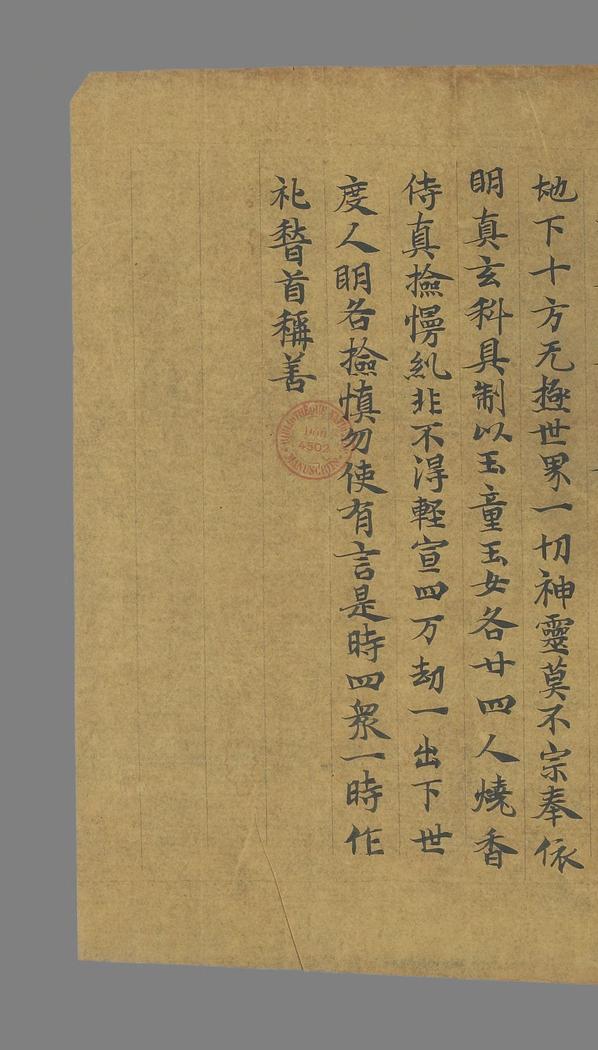 地下十方无極世界一切神靈莫不宗奉依
明真玄科具制以玉童玉女各廿四人燒香
侍真撿慢糺非不得輕宣四万劫一出下世
度人明各撿慎勿使有言是時四衆一時作
礼稽首稱善
BIBLIOTHÈQUE
Don
4502
MANUSCRITS